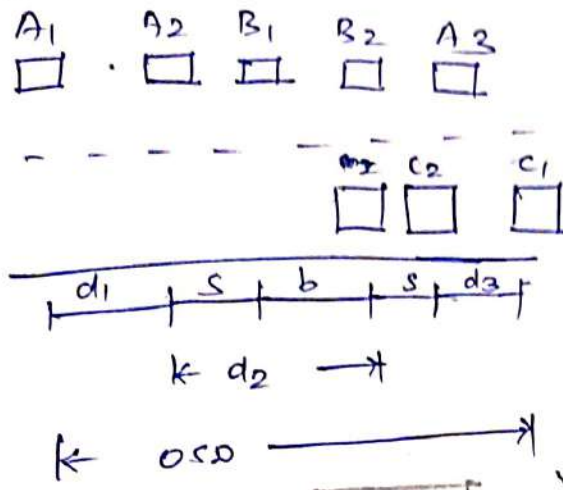 A1 A2 B1 B2 A3
C2 C1
d1 s b s d3
d2
OSD